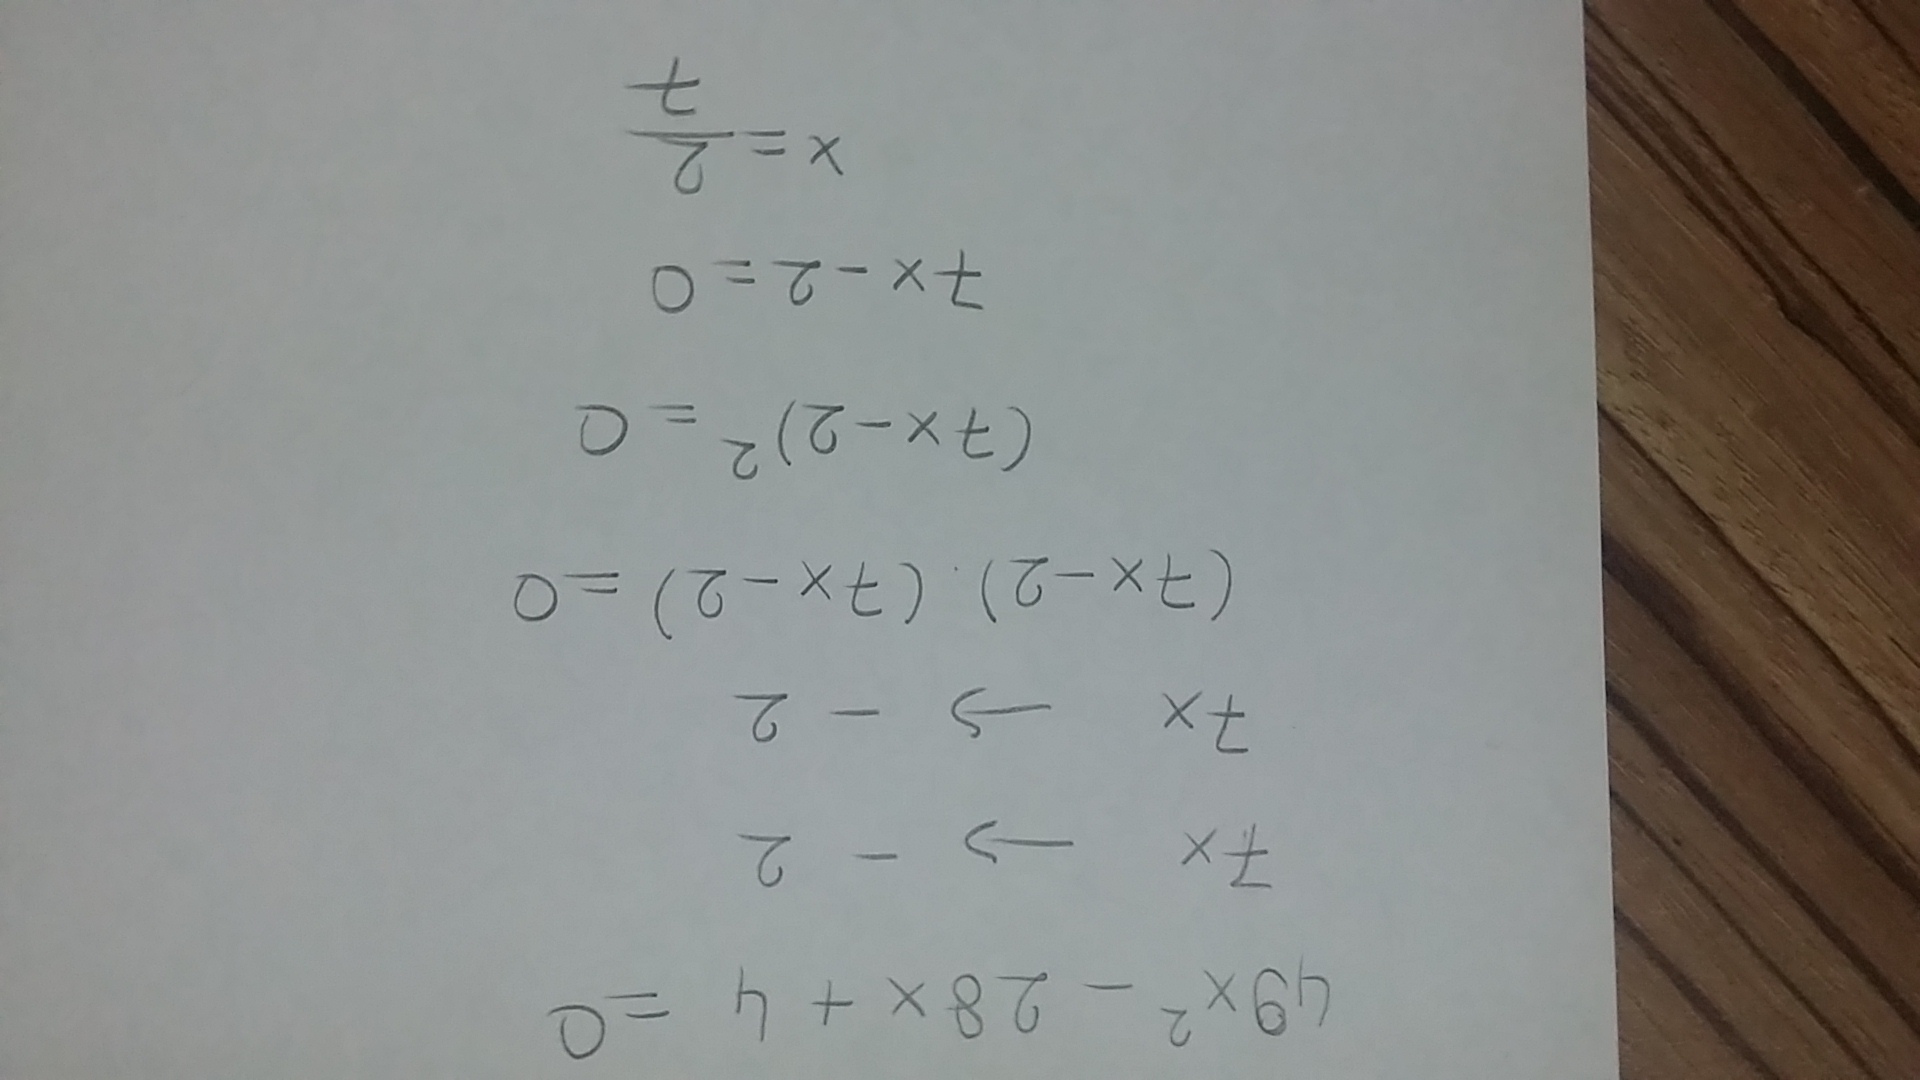 49x² - 28x + 4 = 0
7x → - 2
7x → - 2
(7x - 2) · (7x - 2) = 0
(7x - 2)² = 0
7x - 2 = 0
x = 2/7